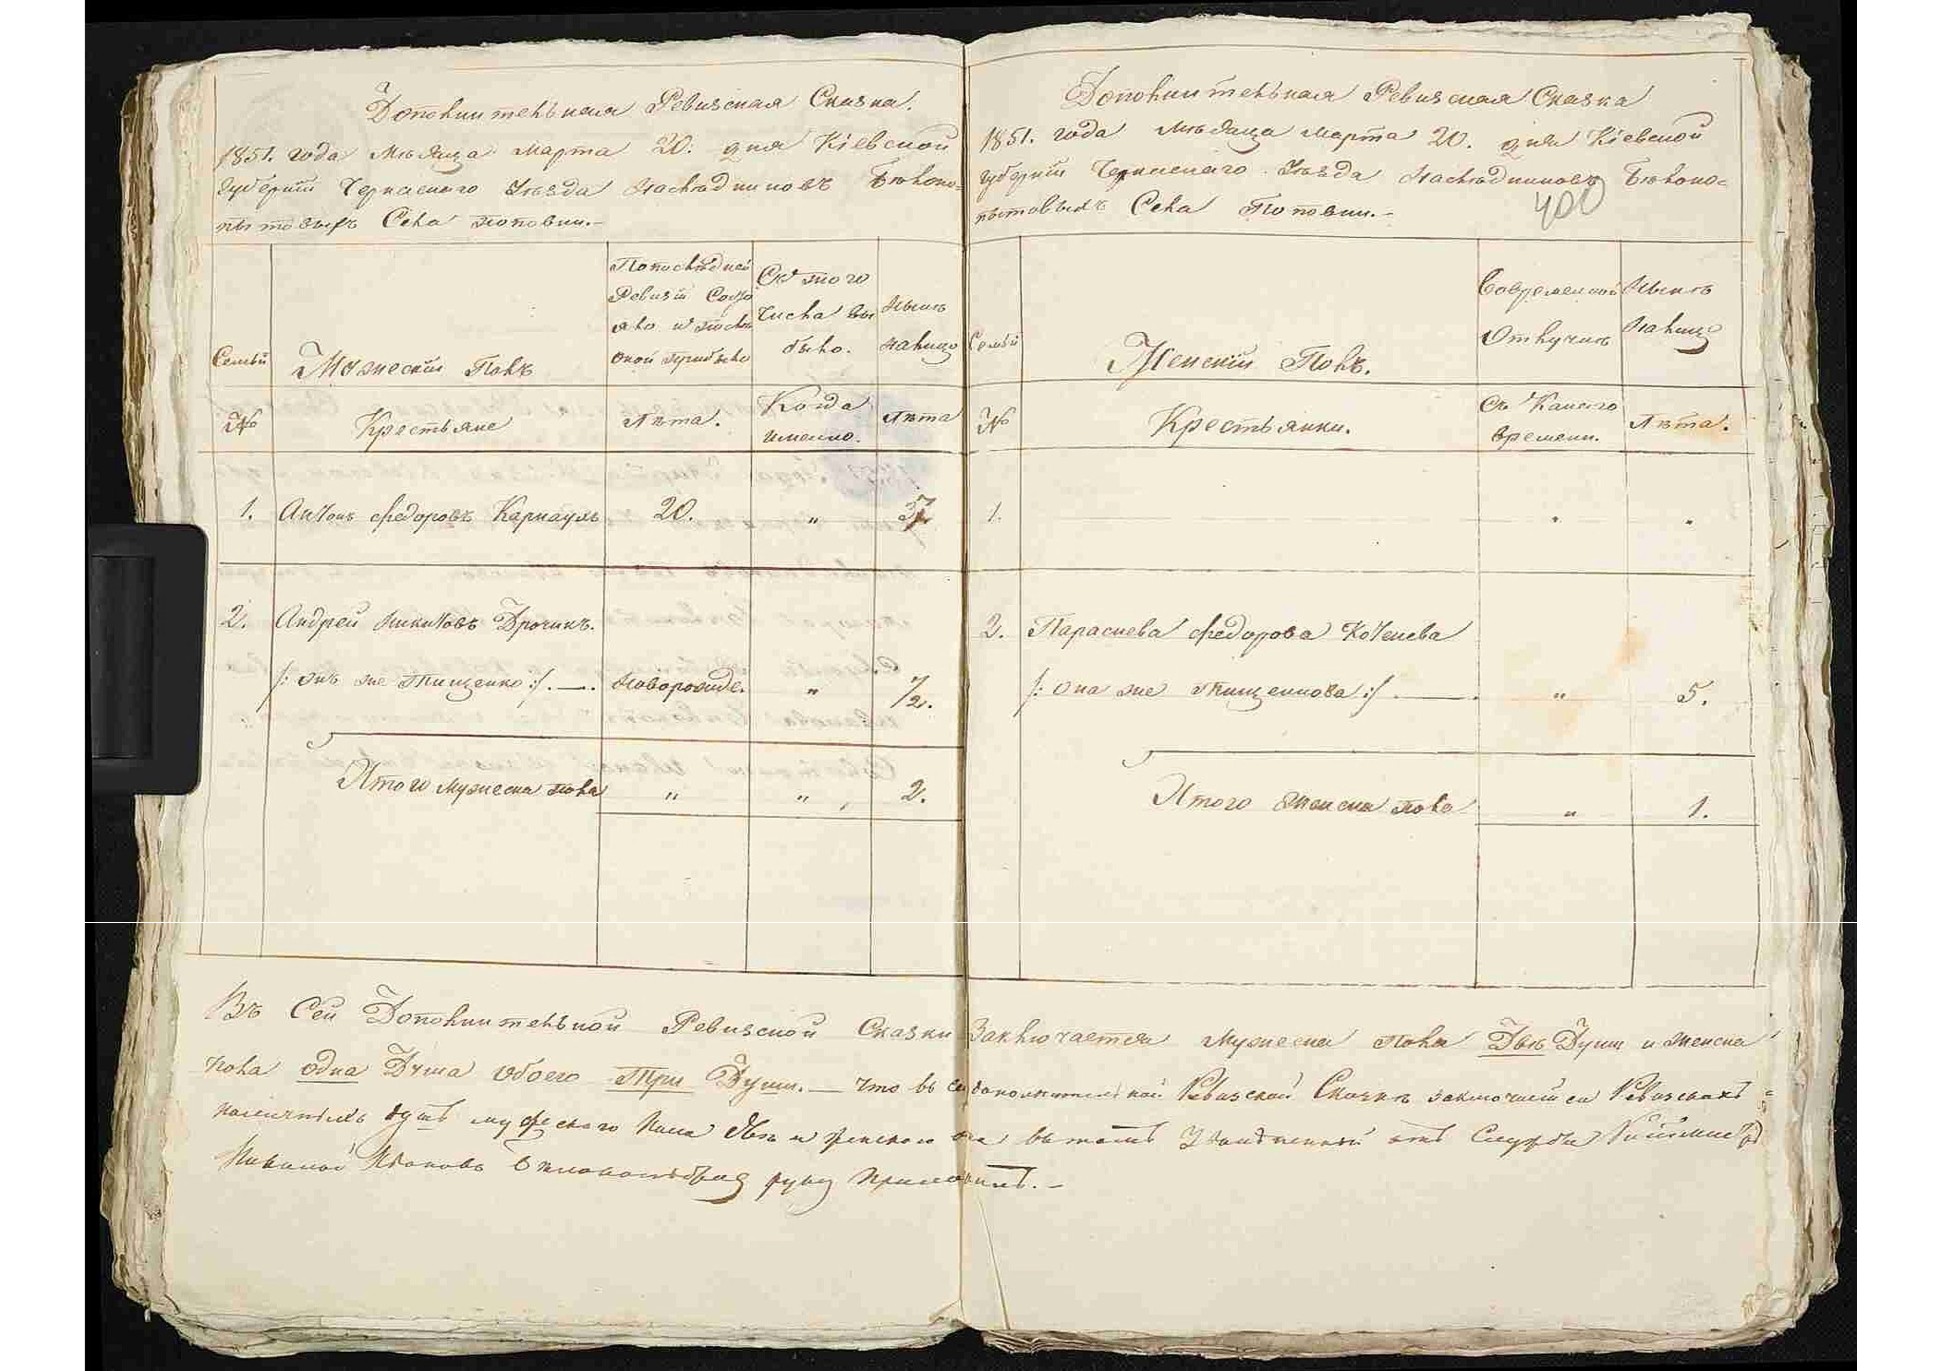 Дополнительная Ревизская Сказка.
1851. года Мѣсяца марта 20. дня Кіевской
Губерніи Черкаскаго Уѣзда Наслѣдниковъ Бѣлоко=
пытовыхъ Села Поповки.-
Семьи
Мужескій Полъ
По послѣдней
Ревизіи Состо
яло и послѣ
оной прибыло
Съ того
числа вы
было.
Нынѣ
налицо
№
Крестьяне
Лѣта.
Когда
именно.
Лѣта
1. Антонъ Федоровъ Карнаухъ 20. " 37
2. Андрей Никитовъ Дрочикъ.
/: онъ же Тищенко :/. —. Новорожде. " 1/2.
Итого мужеска пола " " 2.
Дополнительная Ревизская Сказка
1851. года Мѣсяца марта 20. дня Кіевской
Губерніи Черкаскаго Уѣзда Наслѣдниковъ Бѣлоко=
пытовыхъ Села Поповки.-
400
Семьи
Женскій Полъ.
Вовременной
Отлучкѣ
Нынѣ
Налицо
№
Крестьянки.
Съ Какаго
времени.
Лѣта.
1. " "
2. Параскева Федорова
/: она же Тищенкова :/ —. " 5.
Итого женска пола " 1.
Въ Сей Дополнительной Ревизской Сказки Заключается мужеска пола Двѣ Души и женска
пола одна Душа обоего Три Души. — что въ сей дополнительной Ревизской Сказкѣ заключается Ревизскихъ
наличныхъ душъ мужескаго пола двѣ и женскаго въ томъ Уволненный отъ Службы
Николай Бѣлокопытовъ руку приложилъ. -